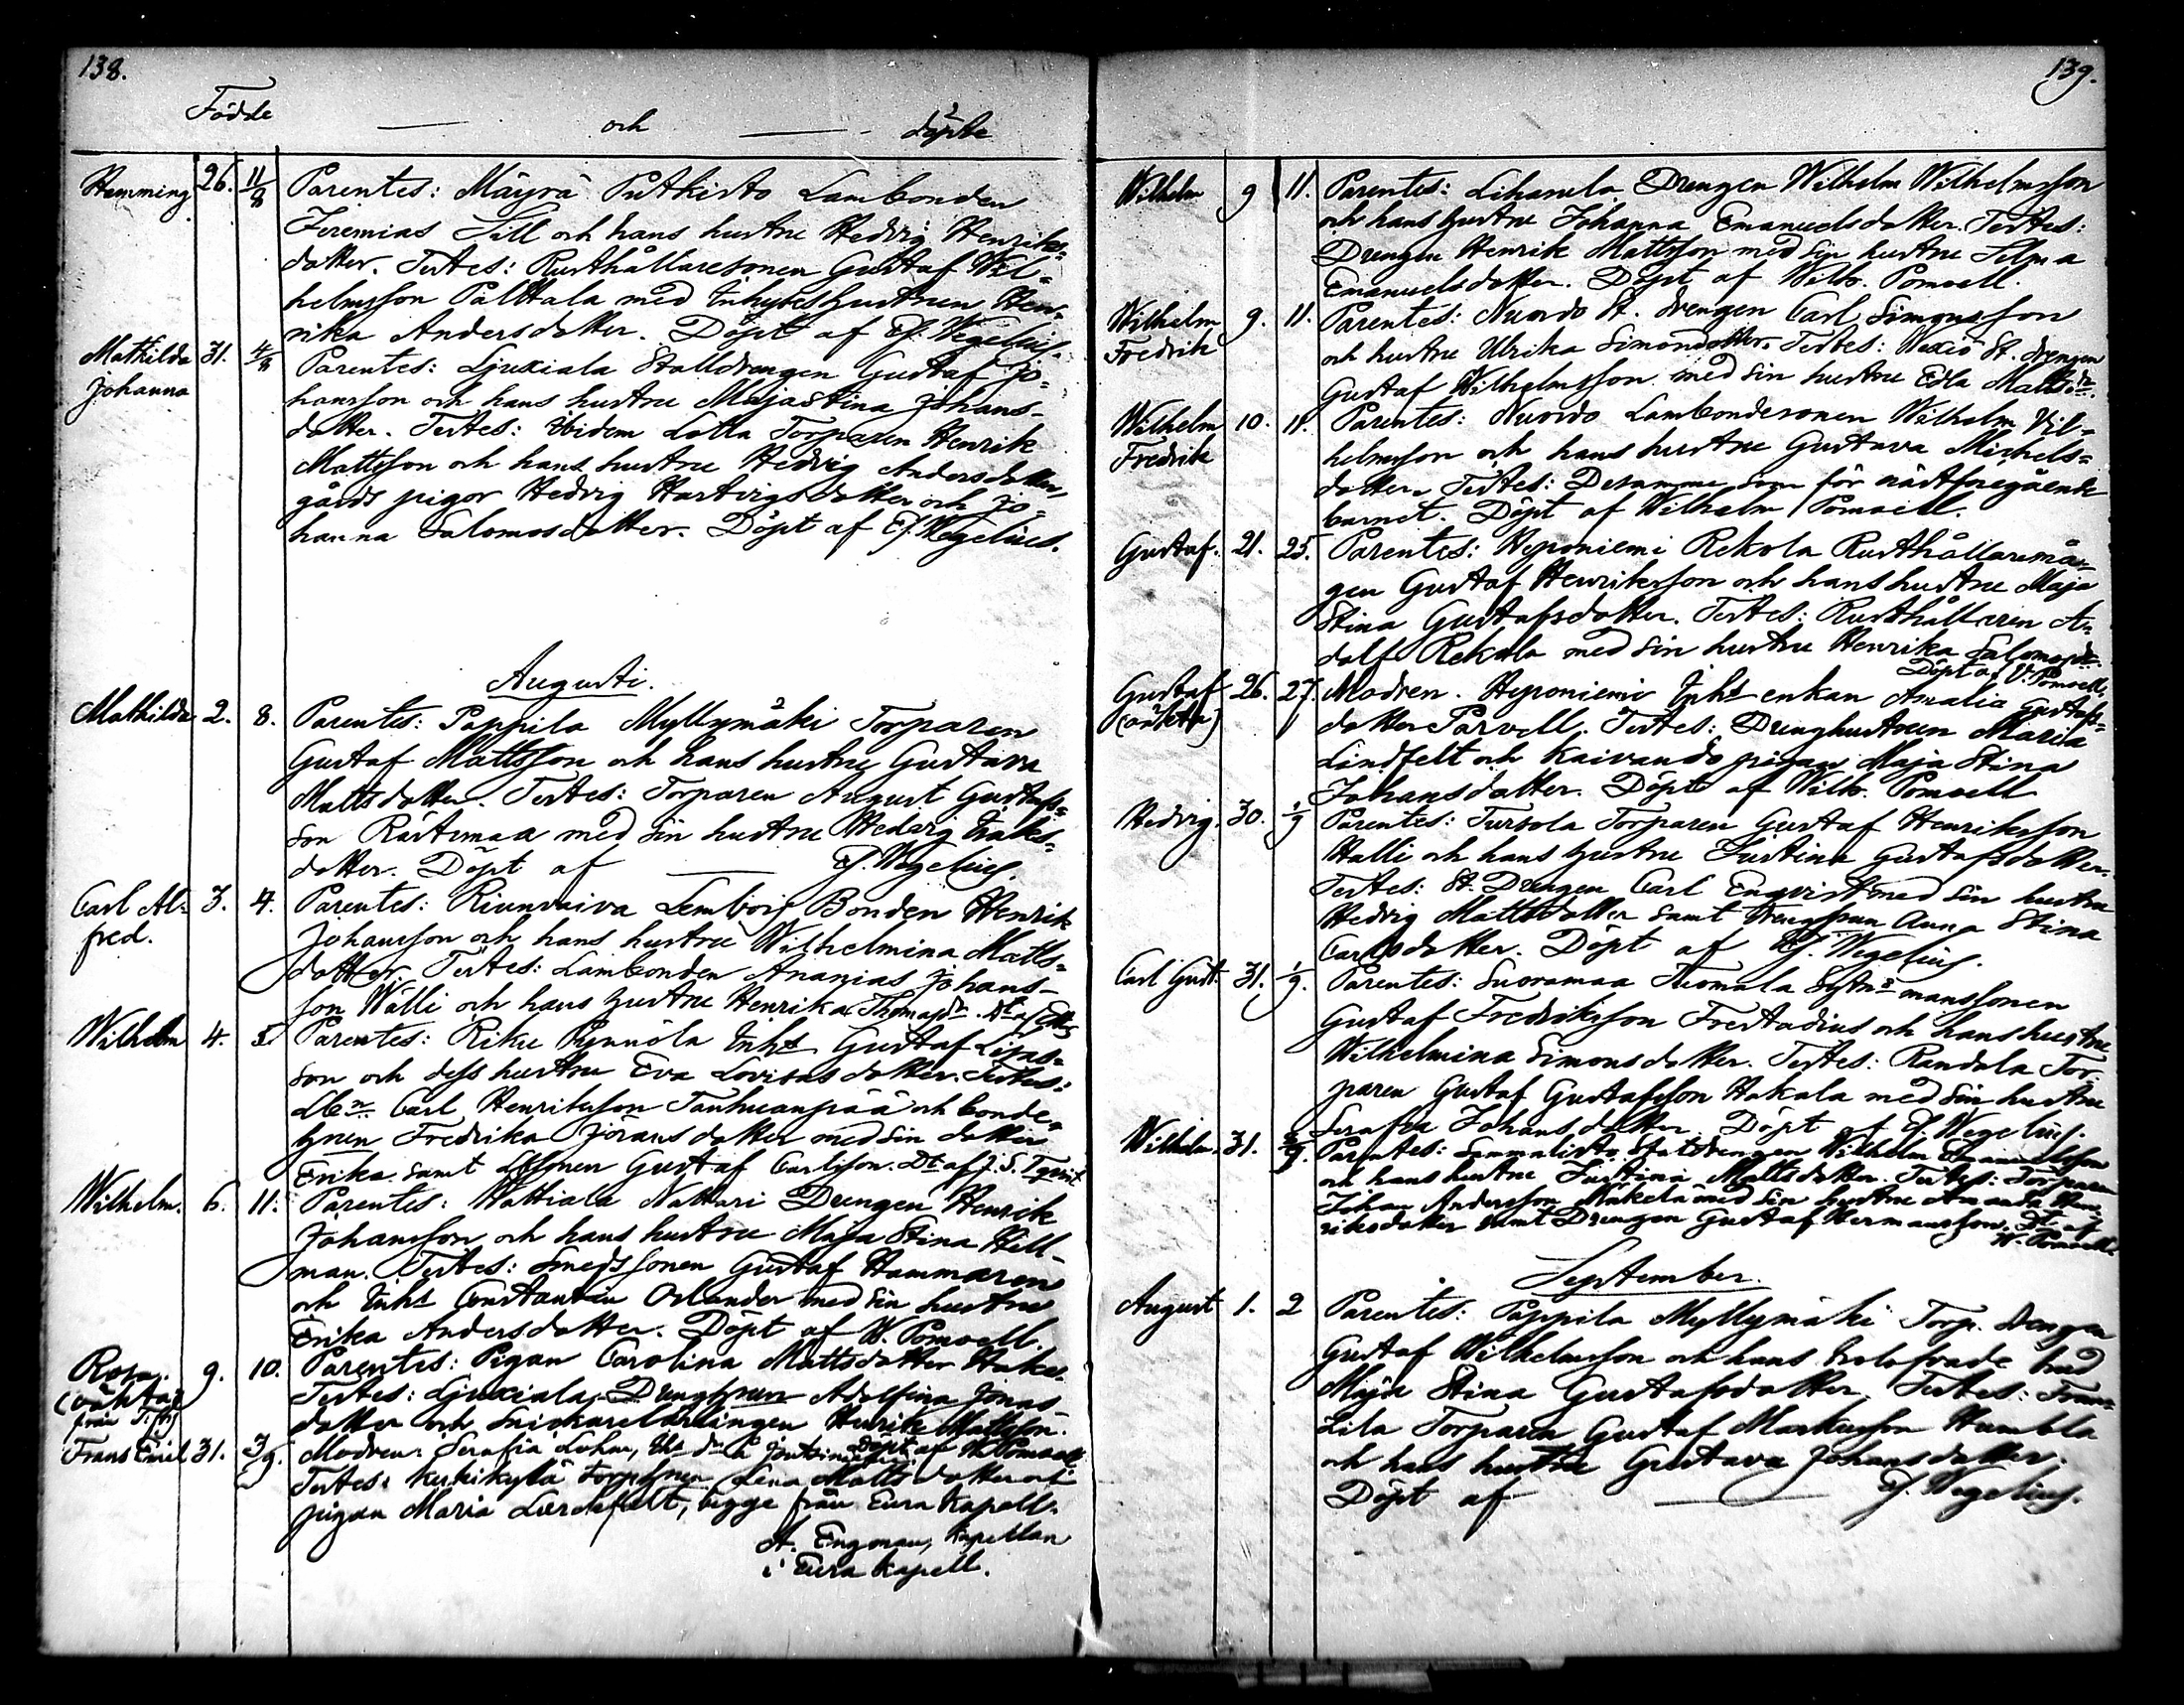 138.
Födde — och — döpte
Hemming 26. 11/8 Parentes: Mäyrä Putkisto Lambonden
Jeremias Sill och hans hustru Hedvig Henriks-
dotter. Testes: Rusthållaresonen Gustaf Wil-
helmsson Palttala med Inhyses hustrun Hen-
rika Andersdotter. Döpt af Ef. Wegelius.
Mathilda 31. 4/8 Parentes: Ljuxiala Stalldrengen Gustaf Jo-
Johanna hansson och hans hustru Majastina Johans-
dotter. Testes: ibidem Lotta Torparen Henrik
Mattsson och hans hustru Hedvig Andersdotter,
gårds pigor Hedvig Hartvigsdotter och Jo-
hanna Salomosdotter. Döpt af Ef. Wegelius.
Augusti.
Mathilda 2. 8. Parentes: Pappila Myllymäki Torparen
Gustaf Mattsson och hans hustru Gustava
Mattsdotter. Testes: Torparen August Gustafs-
son Rästimaa med sin hustru Hedvig Isaks-
dotter. Döpt af — Ef. Wegelius.
Carl Al- 3. 4. Parentes: Lembois Bonden Henrik
fred. Johansson och hans hustru Wilhelmina Matts-
dotter. Testes: Lambonden Ananias Johans-
son Walli och hans hustru Henrika Thomasdr.
Wilhelm 4. 5. Parentes: Riku Pynnölä Inhs Gustaf
son och dess hustru Eva Lovisasdotter. Testes:
Carl Henriksson Tanhuanpää och bonde-
Fredrika Jöransdotter med sin dotter
Erika samt Gustaf Carlsson. Dt af J. S.
Wilhelm. 6. 11. Parentes: Wättiälä Nattari Drengen Henrik
Johansson och hans hustru Maja Stina Hell-
man. Testes: Smedssonen Gustaf Hammarén
och Inhs Constantin Orlander med sin hustru
Erika Andersdotter. Döpt af W. Pomoell.
Rosa. 9. 10. Parentes: Pigan Carolina Mattsdotter
(oäkta) Testes: Ljuxiala Adolfina Jonas-
dotter och Snickarelärlingen Henrik Mattsson.
Döpt af W. Pomoell
Frans Emil 31. 3/9. Modren: Serafia
Testes: Kerkikylä Lena Mattsdotter och
pigan Maria begge från Eura Kapell.
A. Engman, Kapellan
i Eura Kapell.
139.
Wilhelm 9 11. Parentes: Lihasula Drengen Wilhelm Wilhelmsson
och hans hustru Johanna Emanuelsdotter. Testes:
Drengen Henrik Mattsson med sin hustru Selma
Emanuelsdotter. Döpt af Wilh. Pomoell.
Wilhelm 9. 11. Parentes: Nuordo St. drengen Carl Simonsson
Fredrik och hustru Ulrika Simonsdotter. Testes: St. drengen
Gustaf Wilhelmsson med sin hustru Edla Mattsdr.
Wilhelm 10. 11. Parentes: Nuordo Lambondesonen Wilhelm Vil-
Fredrik helmsson och hans hustru Gustava Michels-
dotter. Testes: Desamma som för nästföregående
barnet. Döpt af Wilhelm Pomoell.
Gustaf. 21. 25. Parentes: Heponiemi Rekola Rusthållaremå-
gen Gustaf Henriksson och hans hustru Maja
Stina Gustafsdotter. Testes: Rusthållaren A-
dolf Rekola med sin hustru Henrika Salomosdr.
Döpt af V. Pomoell.
Gustaf 26. 27. Modren. Heponiemi Inhs enkan Amalia Gustafs-
(oäkta) dotter Parvell. Testes: Drenghustrun Maria
Lindfelt och Kaivando pigan Maja Stina
Johansdotter. Döpt af Wilh. Pomoell
Hedvig. 30. 1/9 Parentes: Tursola Torparen Gustaf Henriksson
Halli och hans hustru Justina Gustafsdotter.
Testes: St. Drengen Carl Enqvist med sin hustru
Hedvig Mattsdotter samt Anna Stina
Carlsdotter. Döpt af Ef. Wegelius.
Carl Gust. 31. 1/9. Parentes: Suoramaa Tuomala
Gustaf Fredriksson Frestadius och hans hustru
Wilhelmina Simonsdotter. Testes: Randala Tor-
paren Gustaf Gustafsson Hakala med sin hustru
Serafia Johansdotter. Döpt af Ef. Wegelius.
Wilhelm. 31. Parentes: Sammalisto Statdrengen Wilhelm Emanuelsson
och hans hustru Justina Mattsdotter. Testes: Torparen
Johan Andersson Mäkelä med sin hustru Amanda Hen-
riksdotter samt Drengen Gustaf Hermansson. Dt af
W. Pomoell.
September.
August 1. 2 Parentes: Pappila Myllymäki Torp. drengen
Gustaf Wilhelmsson och hans trolofvade brud
Maja Stina Gustafsdotter. Testes: Frans-
Lila Torparen Gustaf Markusson Humbla
och hans hustru Gustava Johansdotter.
Döpt af — Ef. Wegelius.